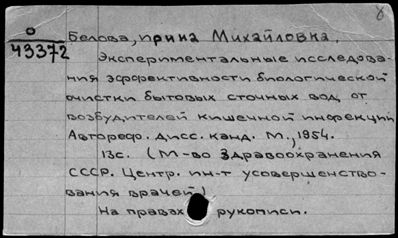 8
О
43372
Белова, Ирина Михайловна.
Экспериментальные исследова-
ния эффективности биологической
очистки бытовых сточных вод от
возбудителей кишечной инфекции
Автореф. дисс. канд. М., 1954.
13с. (М-во Здравоохранения
СССР. Центр. ин-т усовершенство-
вания врачей)
На правах рукописи.